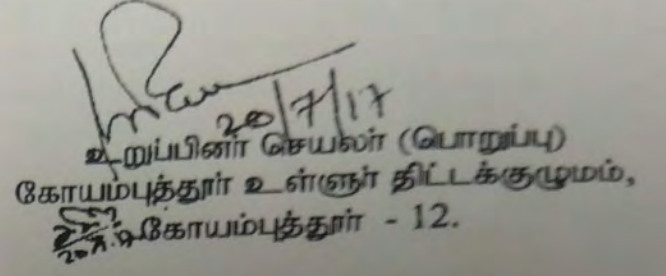 20/7/17
உறுப்பினர் செயலர் (பொறுப்பு)
கோயம்புத்தூர் உள்ளூர் திட்டக்குழுமம்,
கோயம்புத்தூர் - 12.